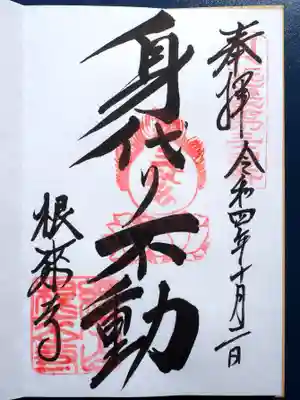 奉拝 令和四年十月二日
身代り不動
根来寺